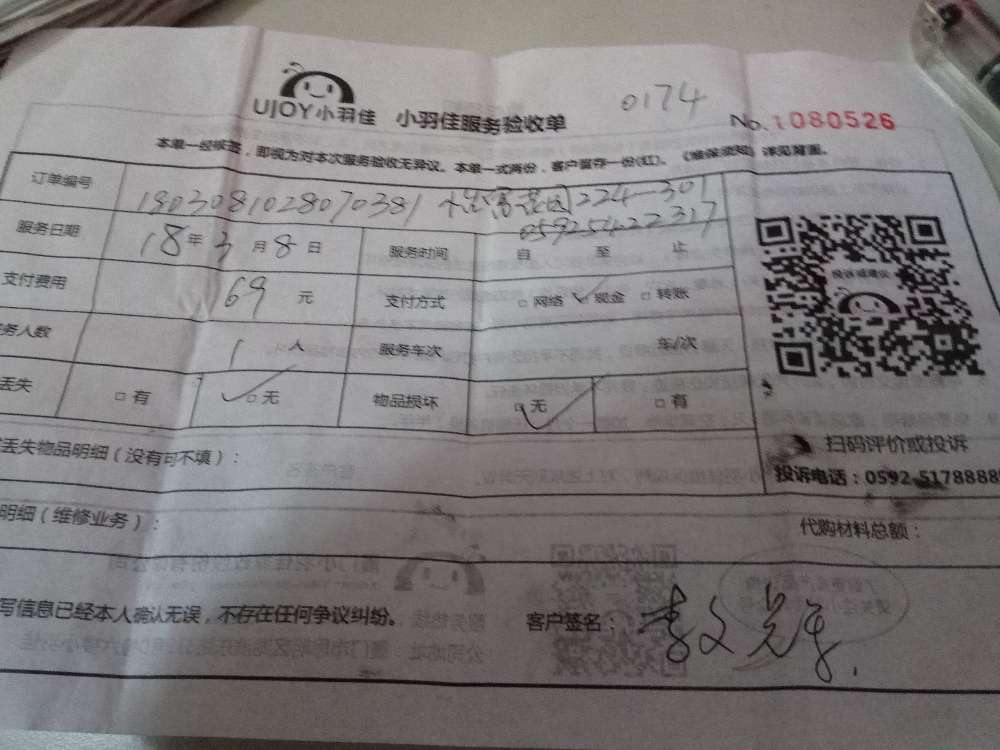 UJOY小羽佳 小羽佳服务验收单
0174
No. 1080526
本单一经核签，即视为对本次服务验收无异议。本单一式两份，客户留存一份(红)。《维保须知》详见背面。
订单编号 1803081028070381 怡富花园224-301
05925422317
服务日期 18年3月8日 服务时间 自 至 止
支付费用 69元 支付方式 □网络 ✓现金 □转账
务人数 1人 服务车次 车/次
丢失 □有 ✓□无 物品损坏 □无✓ □有
投诉或建议
扫码评价或投诉
投诉电话：0592-5178888
丢失物品明细（没有可不填）：
明细（维修业务）：
代购材料总额：
写信息已经本人确认无误，不存在任何争议纠纷。
客户签名：李文